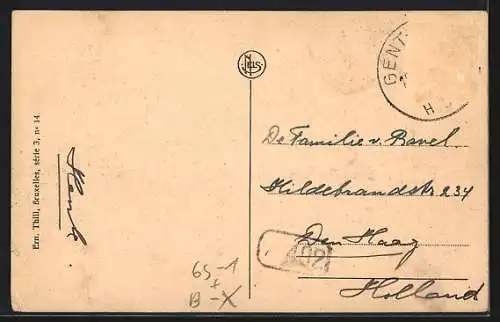 Ern. Thill, Bruxelles, série 3, nº 14
Henk
NELS
GENT
H
De Familie v. Bavel
Hildebrandstr 234
Den Haag
Holland
65-1
+
B-X